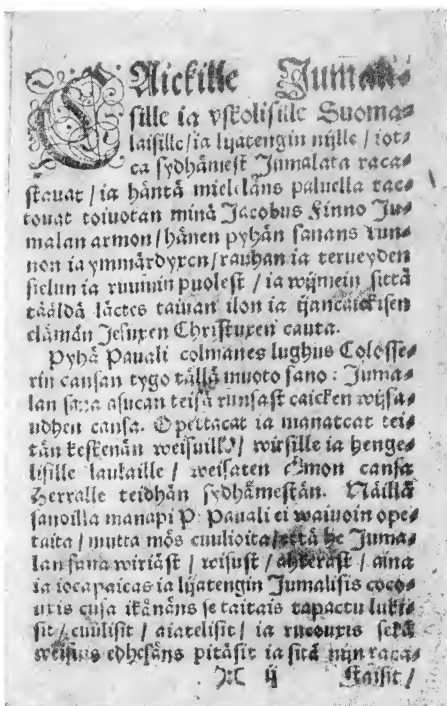 CAickille Jumali⸗
sille ia vskolisille Suoma⸗
laisille / ia lijatengin nijlle / iot⸗
ca sydhämest Jumalata raca⸗
stauat / ia händä mielelläns paluella tac⸗
touat toiuotan minä Jacobus Finno Ju⸗
malan armon / hänen pyhän sanans tun⸗
non ia ymmärdyxen / rauhan ia terueyden
sielun ia ruumin puolest / ia wijmein sittä
täälдä läctes taiuan ilon ia ijancaickisen
elämän Jesuxen Christuxen cauta.
Pyhä Pauali colmanes lughus Colosse⸗
rin cansan tygö tällä muoto sano : Juma⸗
lan sana asucan teisä runsast caicken wijsa⸗
udhen cansa. Opettacat ia manatcat tei⸗
tän keskenän weisuilla / wirsille ia henge⸗
lisille lauluille / weisaten armon cansa
Herralle teidhän sydhämestän. Näillä
sanoilla manapi P. Pauali ei waiuoin ope⸗
taita / mutta mös cuulioita / että he Juma⸗
lan sana wiriäst / wisust / ahkerast / aina
ia iocapaicas ia lijatengin Jumalisis coco⸗
uxis cusa ikänäns se taitais tapactu luki⸗
sit / cuulisit / aiatelisit / ia rucouxis sekä
weisuis edhesäns pitäsit ia sitä nijn raca⸗
):( ij staisit /